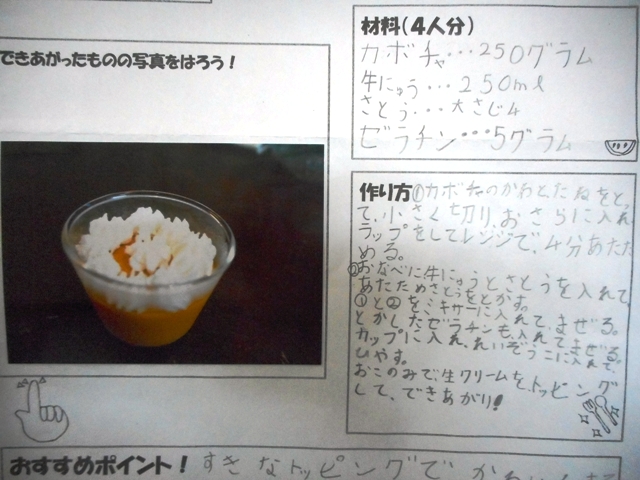 できあがったものの写真をはろう！
材料(4人分)
カボチャ・・・250グラム
牛にゅう・・・250ml
さとう・・・大さじ4
ゼラチン・・・5グラム
作り方①カボチャのかわとたねをとっ
て、小さく切りおさらに入れ
ラップをしてレンジで、4分あたた
める。
②おなべに牛にゅうとさとうを入れて、
あたためさとうをとかす。
①と②をミキサーに入れて、まぜる。
とかしたゼラチンも入れてまぜる。
カップに入れ、れいぞうこに入れて、
ひやす。
おこのみで、生クリームを、トッピング
して、できあがり!
おすすめポイント！ すきなトッピングで